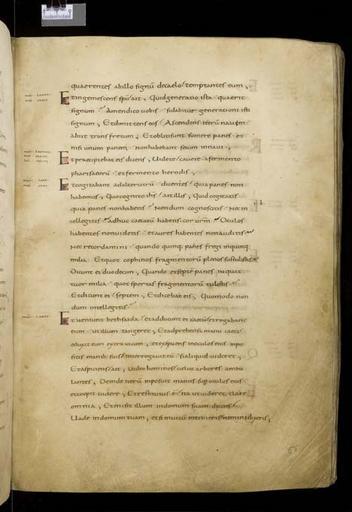 quaerentes abillo signū decaelo temptantes eum,
Et ingemescens spu ait, Quid generatio ista quaerit
signum, Amen dico vobis si dabitur generationi isti
signum, Et dimittens eos Ascendens iterū navem
abiit trans fretum, Et obliti sunt sumere panes et
nisi unum panem non habebant secum in navi,
Et praecipiebat eis dicens, Videte cavete a fermento
pharisaeorū et fermento herodis,
Et cogitabant ad alterutrū dicentes quia panes non
habemus, Quo cognito ihs ait illis, Quid cogitatis
quia panes non habetis, Nondum cognoscitis Nec in
tellegitis adhuc caecatū habetis cor vrm, Oculos
habentes non videtis et aures habentes non auditis
Nec recordamini quando quinq panes fregi in quinq
milia Et quot cophinos fragmentorū plenos sustulistis
Dicunt ei duodecim, Quando et septē panes in quat
tuor milia quot sportas fragmentorū tulistis
Et dicunt ei septem, Et dicebat eis, Quomodo non
dum intellegitis
Et veniunt bethsaida et adducunt ei caecū et rogabant
eum ut illum tangeret, Et adprehensa manu caeci
eduxit eum extra vicum, et expuens in oculos eius inpo
sitis manib suis interrogavit eū si aliquid videret,
Et aspiciens ait, Video homines velut arbores ambu
lantes, Deinde iterū inposuit manus sup oculos eius
et coepit videre, Et restitutus ē ita ut videret clare
omnia, Et misit illum in domum suam dicens
Vade in domum tuam, et si in vicū introieris nemini dixeris,